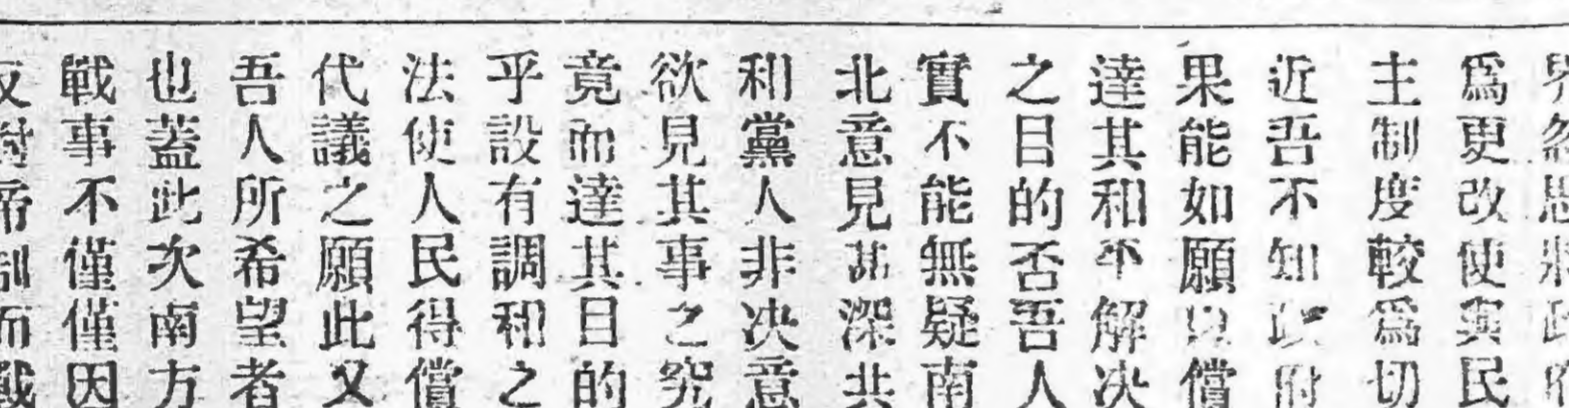 爲更改使與民
主制度較爲切
近吾不知政府
果能如願以償
達其和平解决
之目的否吾人
實不能無疑南
北意見甚深共
和黨人非决意
欲見其事之究
竟而達其目的
乎設有調和之
法使人民得償
代議之願此又
吾人所希望者
也蓋此次南方
戰事不僅僅因
反對帝制而戰